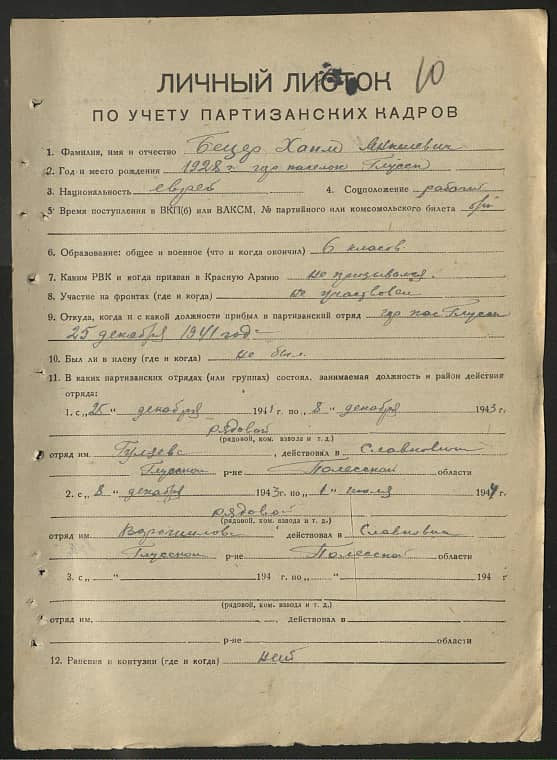 10
ЛИЧНЫЙ ЛИСТОК
ПО УЧЕТУ ПАРТИЗАНСКИХ КАДРОВ
1. Фамилия, имя и отчество Бецер Хаим
2. Год и место рождения 1928 г. гор поселок Глусск
3. Национальность еврей 4. Соцположение рабочий
5. Время поступления в ВКП(б) или ВЛКСМ, № партийного или комсомольского билета б/п
6. Образование: общее и военное (что и когда окончил) 6 класов
7. Каким РВК и когда призван в Красную Армию не призывался.
8. Участие на фронтах (где и когда) не участвовал
9. Откуда, когда и с какой должности прибыл в партизанский отряд гор пос Глусск
25 декабря 1941 год
10. Был ли в плену (где и когда) не был.
11. В каких партизанских отрядах (или группах) состоял, занимаемая должность и район действия
отряда:
1. с „25" декабря 1941 г. по „8" декабря 1943 г.
рядовой
(рядовой, ком. взвода и т. д.)
отряд им. , действовал в
Глусской р-не Полесской области
2. с „8" декабря 1943 г. по „1" июля 1944 г.
рядовой
(рядовой, ком. взвода и т. д.)
отряд им. Ворошилова действовал в
Глусской р-не Полесской области
3. с „ " 194 г. по „ " 194 г
(рядовой, ком. взвода и т. д.)
отряд им. , действовал в
р-не области
12. Ранения и контузии (где и когда) нет